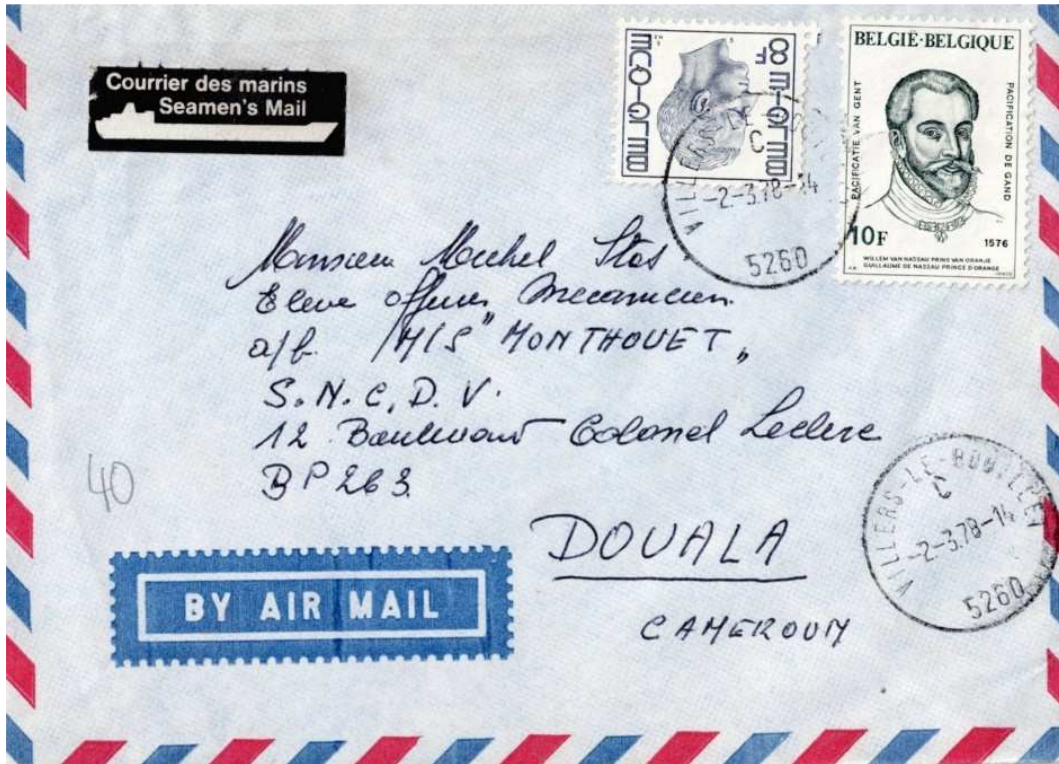 Courrier des marins
Seamen's Mail
BELGIË·BELGIQUE
8F
BELGIË·BELGIQUE
PACIFICATIE VAN GENT
PACIFICATION DE GAND
10F
1576
WILLEM VAN NASSAU PRINS VAN ORANJE
GUILLAUME DE NASSAU PRINCE D'ORANGE
C
-2-3.78-14
5260
Monsieur Michel Stas
Eleve officier Mecanicien
a/b. M/S "MONTHOUET"
S.N.C.D.V.
12 Boulevard Colonel Leclerc
BP 263.
DOUALA
CAMEROUN
40
BY AIR MAIL
VILLERS-LE-BOUILLET
C
-2-3.78-14
5260